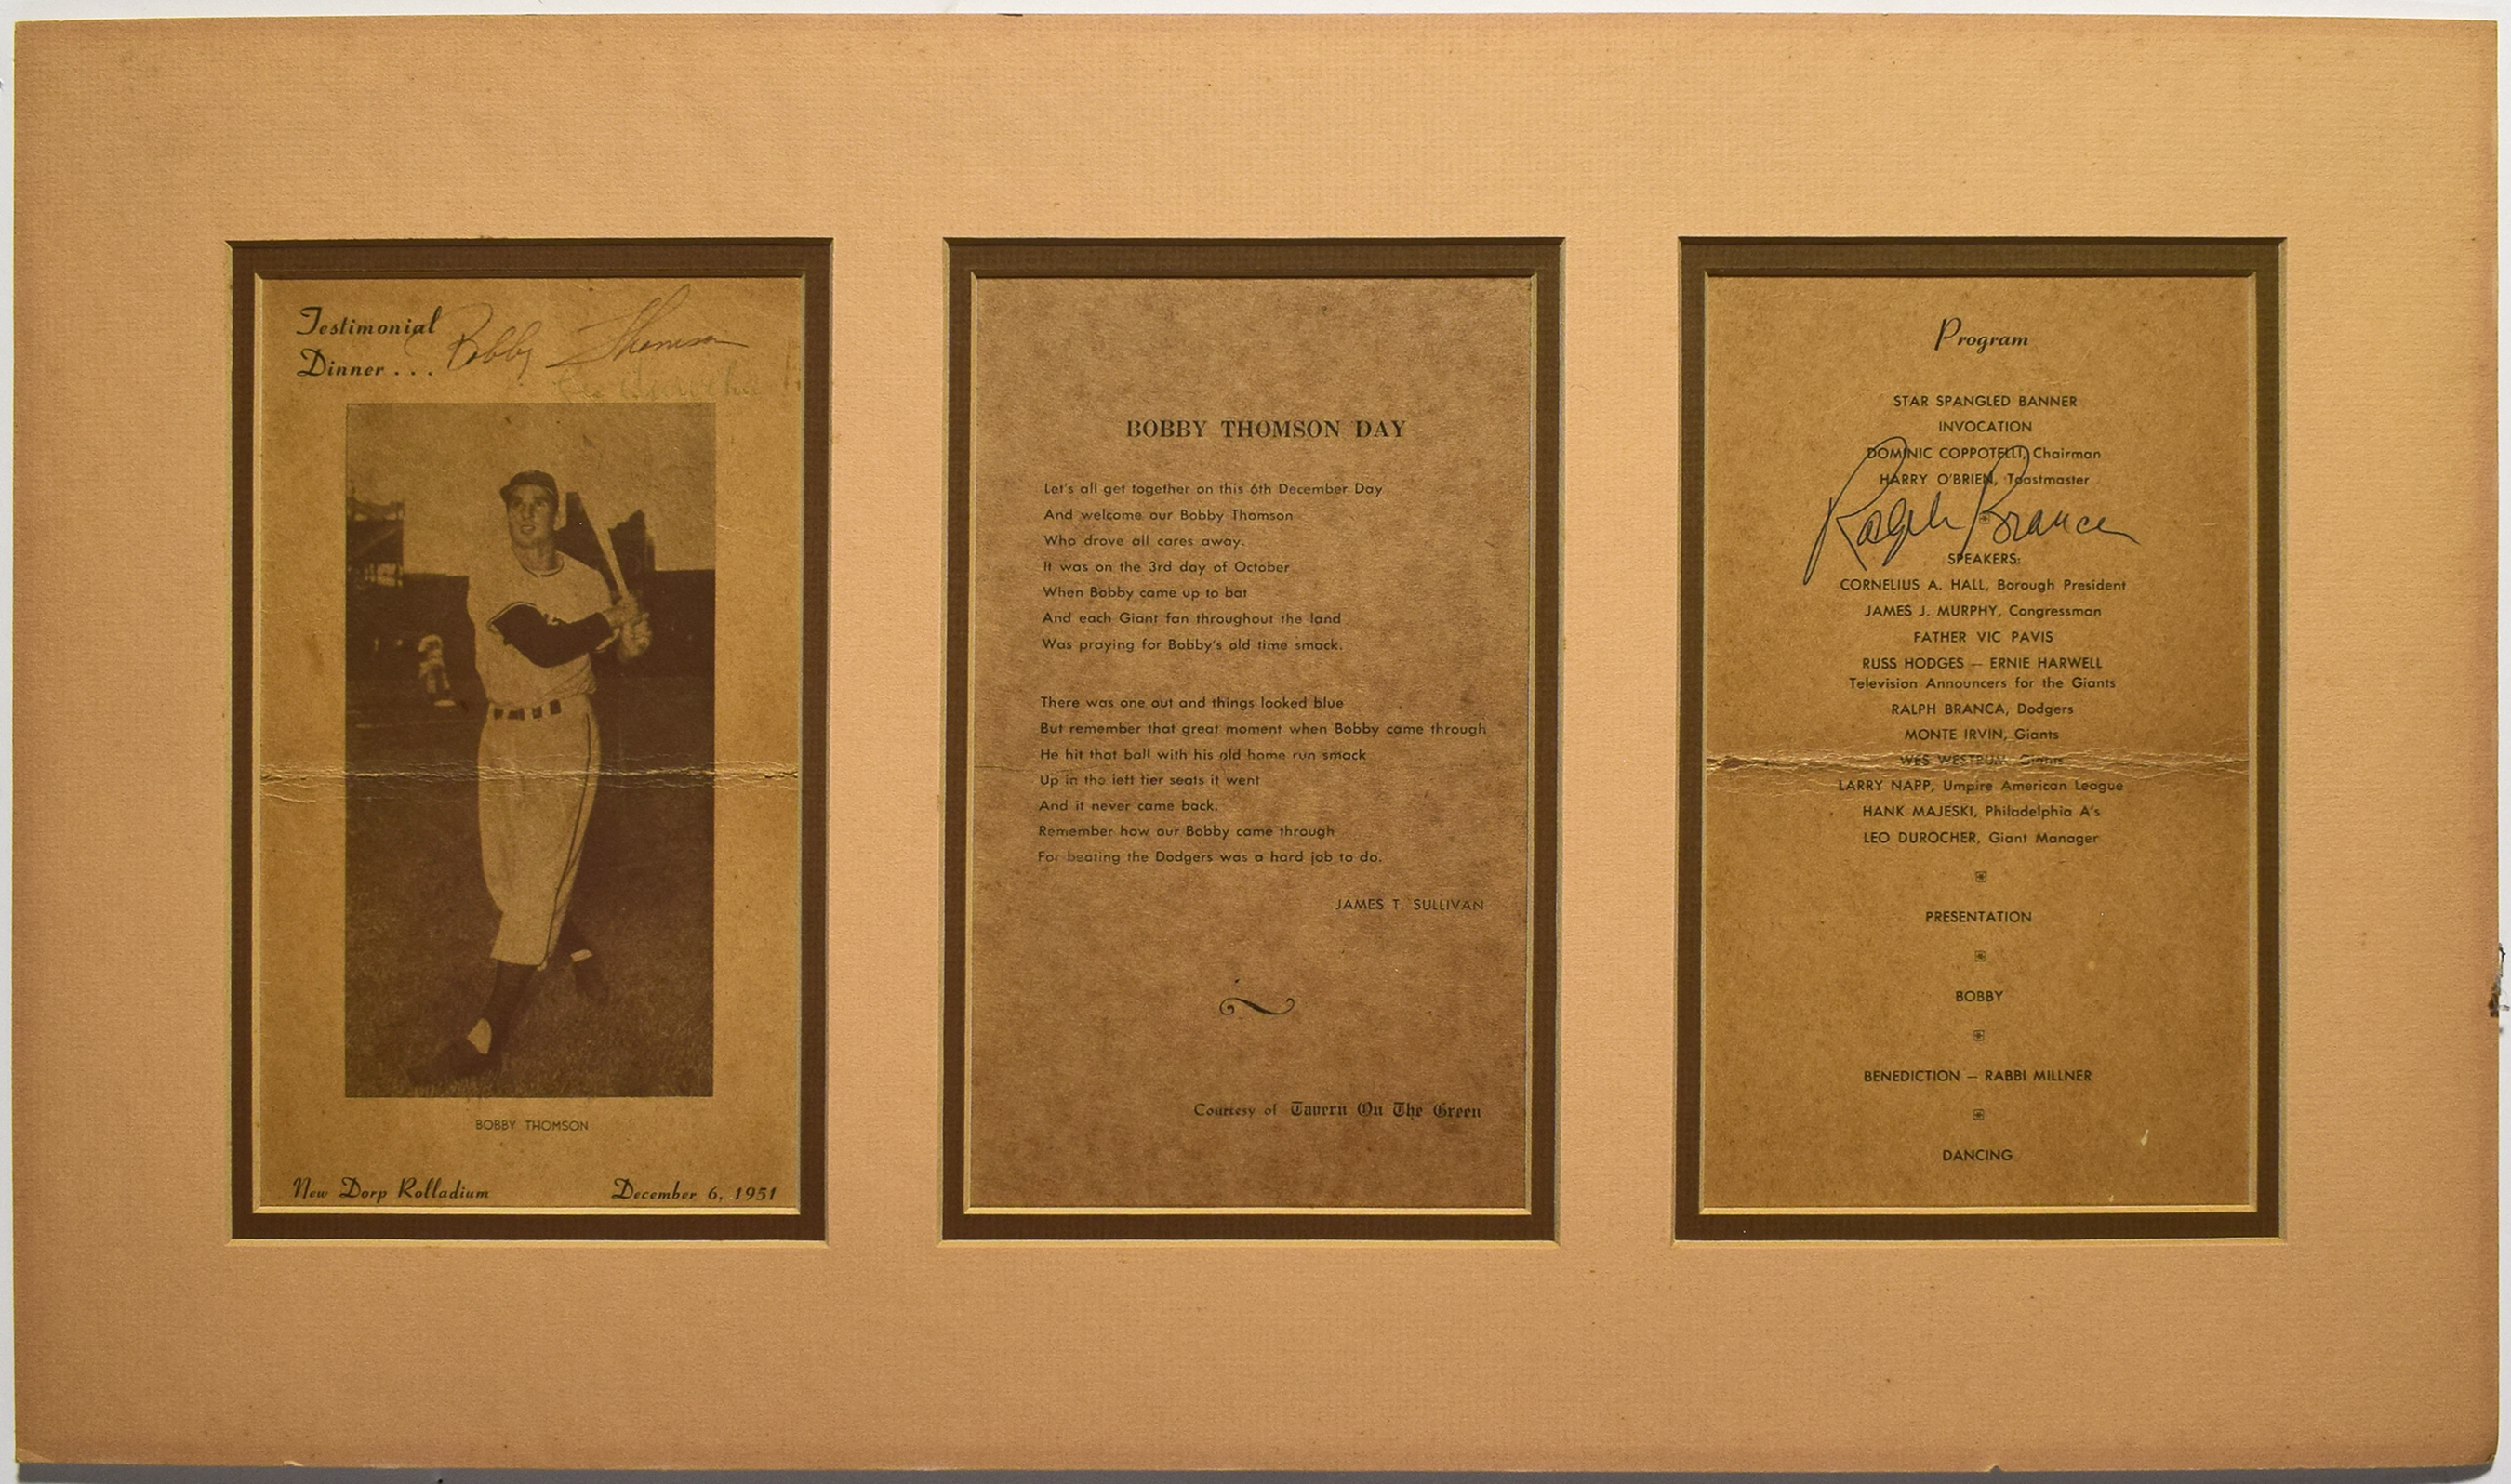 Testimonial
Dinner . . .
Bobby Thomson
BOBBY THOMSON
New Dorp Rolladium December 6, 1951
BOBBY THOMSON DAY
Let's all get together on this 6th December Day
And welcome our Bobby Thomson
Who drove all cares away.
It was on the 3rd day of October
When Bobby came up to bat
And each Giant fan throughout the land
Was praying for Bobby's old time smack.
There was one out and things looked blue
But remember that great moment when Bobby came through
He hit that ball with his old home run smack
Up in the left tier seats it went
And it never came back.
Remember how our Bobby came through
For beating the Dodgers was a hard job to do.
JAMES T. SULLIVAN
Courtesy of Tavern On The Green
Program
STAR SPANGLED BANNER
INVOCATION
DOMINIC COPPOTELLI, Chairman
HARRY O'BRIEN, Toastmaster
Ralph Branca
SPEAKERS:
CORNELIUS A. HALL, Borough President
JAMES J. MURPHY, Congressman
FATHER VIC PAVIS
RUSS HODGES — ERNIE HARWELL
Television Announcers for the Giants
RALPH BRANCA, Dodgers
MONTE IRVIN, Giants
WES WESTRUM, Giants
LARRY NAPP, Umpire American League
HANK MAJESKI, Philadelphia A's
LEO DUROCHER, Giant Manager
PRESENTATION
BOBBY
BENEDICTION — RABBI MILLNER
DANCING